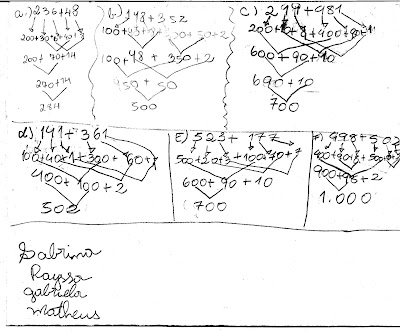 a.) 236+48
200+30+6+40+8
200+ 70+14
270+14
284
b.) 148+352
100+48 + 350+2
450 + 50
500
c) 219+481
600+90+10
690+10
700
d) 141+361
100+40+1+300+ 60+1
400+100+2
502
E) 523+ 177
500+20+3+100+70+7
600+90 +10
700
F) 498+502
900+98+2
1.000
Sabrina
Rayssa
gabriela
matheus